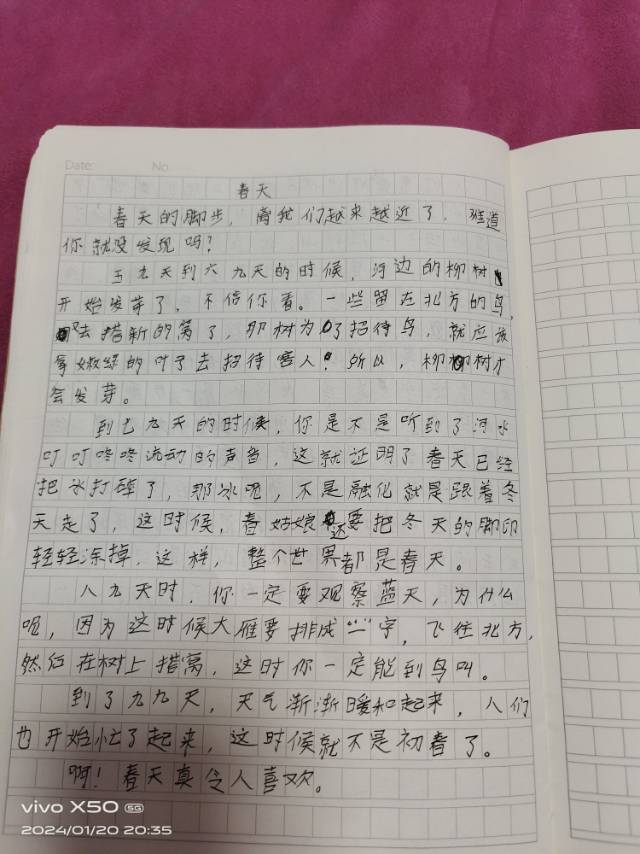 Date: No
春天
春天的脚步，离我们越来越近了，难道
你就没发现吗？
五九天到六九天的时候，河边的柳树
开始发芽了，不信你看。一些留在北方的鸟，
又去搭新的窝了，那树为了招待鸟，就应该
拿嫩绿的叶子去招待客人！所以，柳树才
会发芽。
到七九天的时候，你是不是听到了河水
叮叮咚咚流动的声音，这就证明了春天已经
把冰打碎了，那冰呢，不是融化就是跟着冬
天走了，这时候，春姑娘还要把冬天的脚印
轻轻涂掉，这样，整个世界都是春天。
八九天时，你一定要观察蓝天，为什么
呢，因为这时候大雁要排成“一”字，飞往北方，
然红在树上搭窝，这时你一定能到鸟叫。
到了九九天，天气渐渐暖和起来，人们
也开始忙了起来，这时候就不是初春了。
啊！春天真令人喜欢。
vivo X50 5G
2024/01/20 20:35